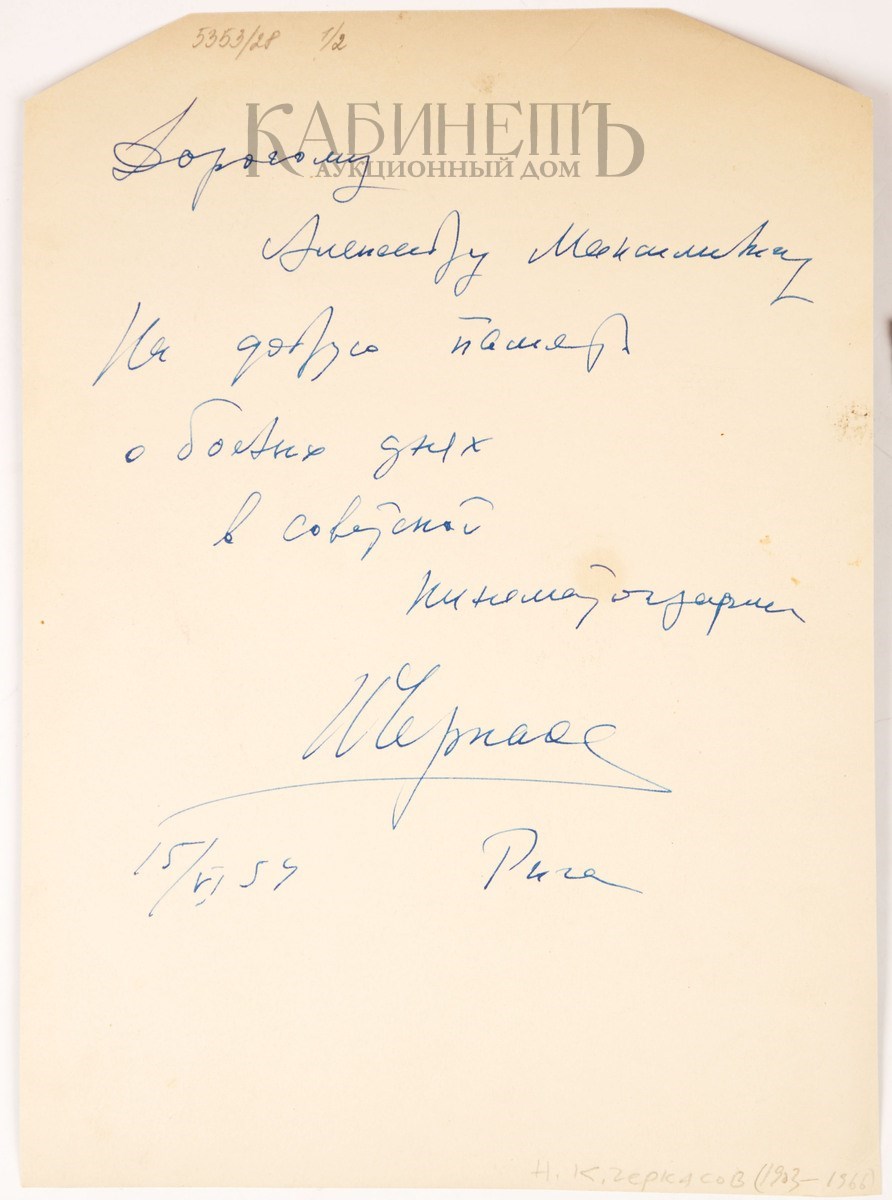 5353/28 1/2
КАБИНЕТЪ
АУКЦИОННЫЙ ДОМ
Дорогому
Александру Максимовичу
На добрую память
о боевых днях
в советской
кинематографии
НЧеркасов
15/VI 54 Рига
Н. К. Черкасов (1903-1966)